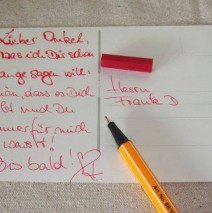 Lieber Onkel,
was ich Dir schon
lange sagen will:
schön, dass es Dich
gibt und Du
immer für mich
da warst!
Bis bald!
Herrn
Frank D